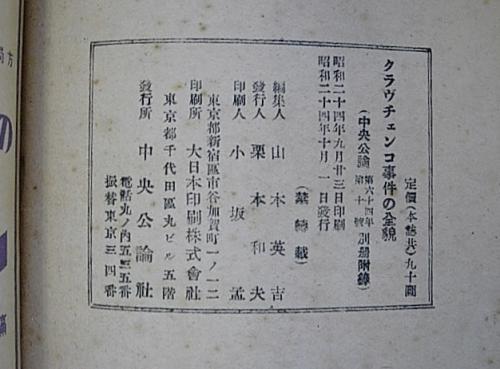 定價(本誌共)九十圓
クラヴチェンコ事件の全貌
(中央公論 第六十四年 第十號 別册附錄)
昭和二十四年九月廿三日印刷
昭和二十四年十月一日發行
(禁轉載)
編集人 山本英吉
發行人 栗本和夫
印刷人 小坂孟
東京都新宿區市谷加賀町一ノ一二
印刷所 大日本印刷株式會社
東京都千代田區丸ビル五階
發行所 中央公論社
電話丸ノ内五三五番
振替東京三四番
の